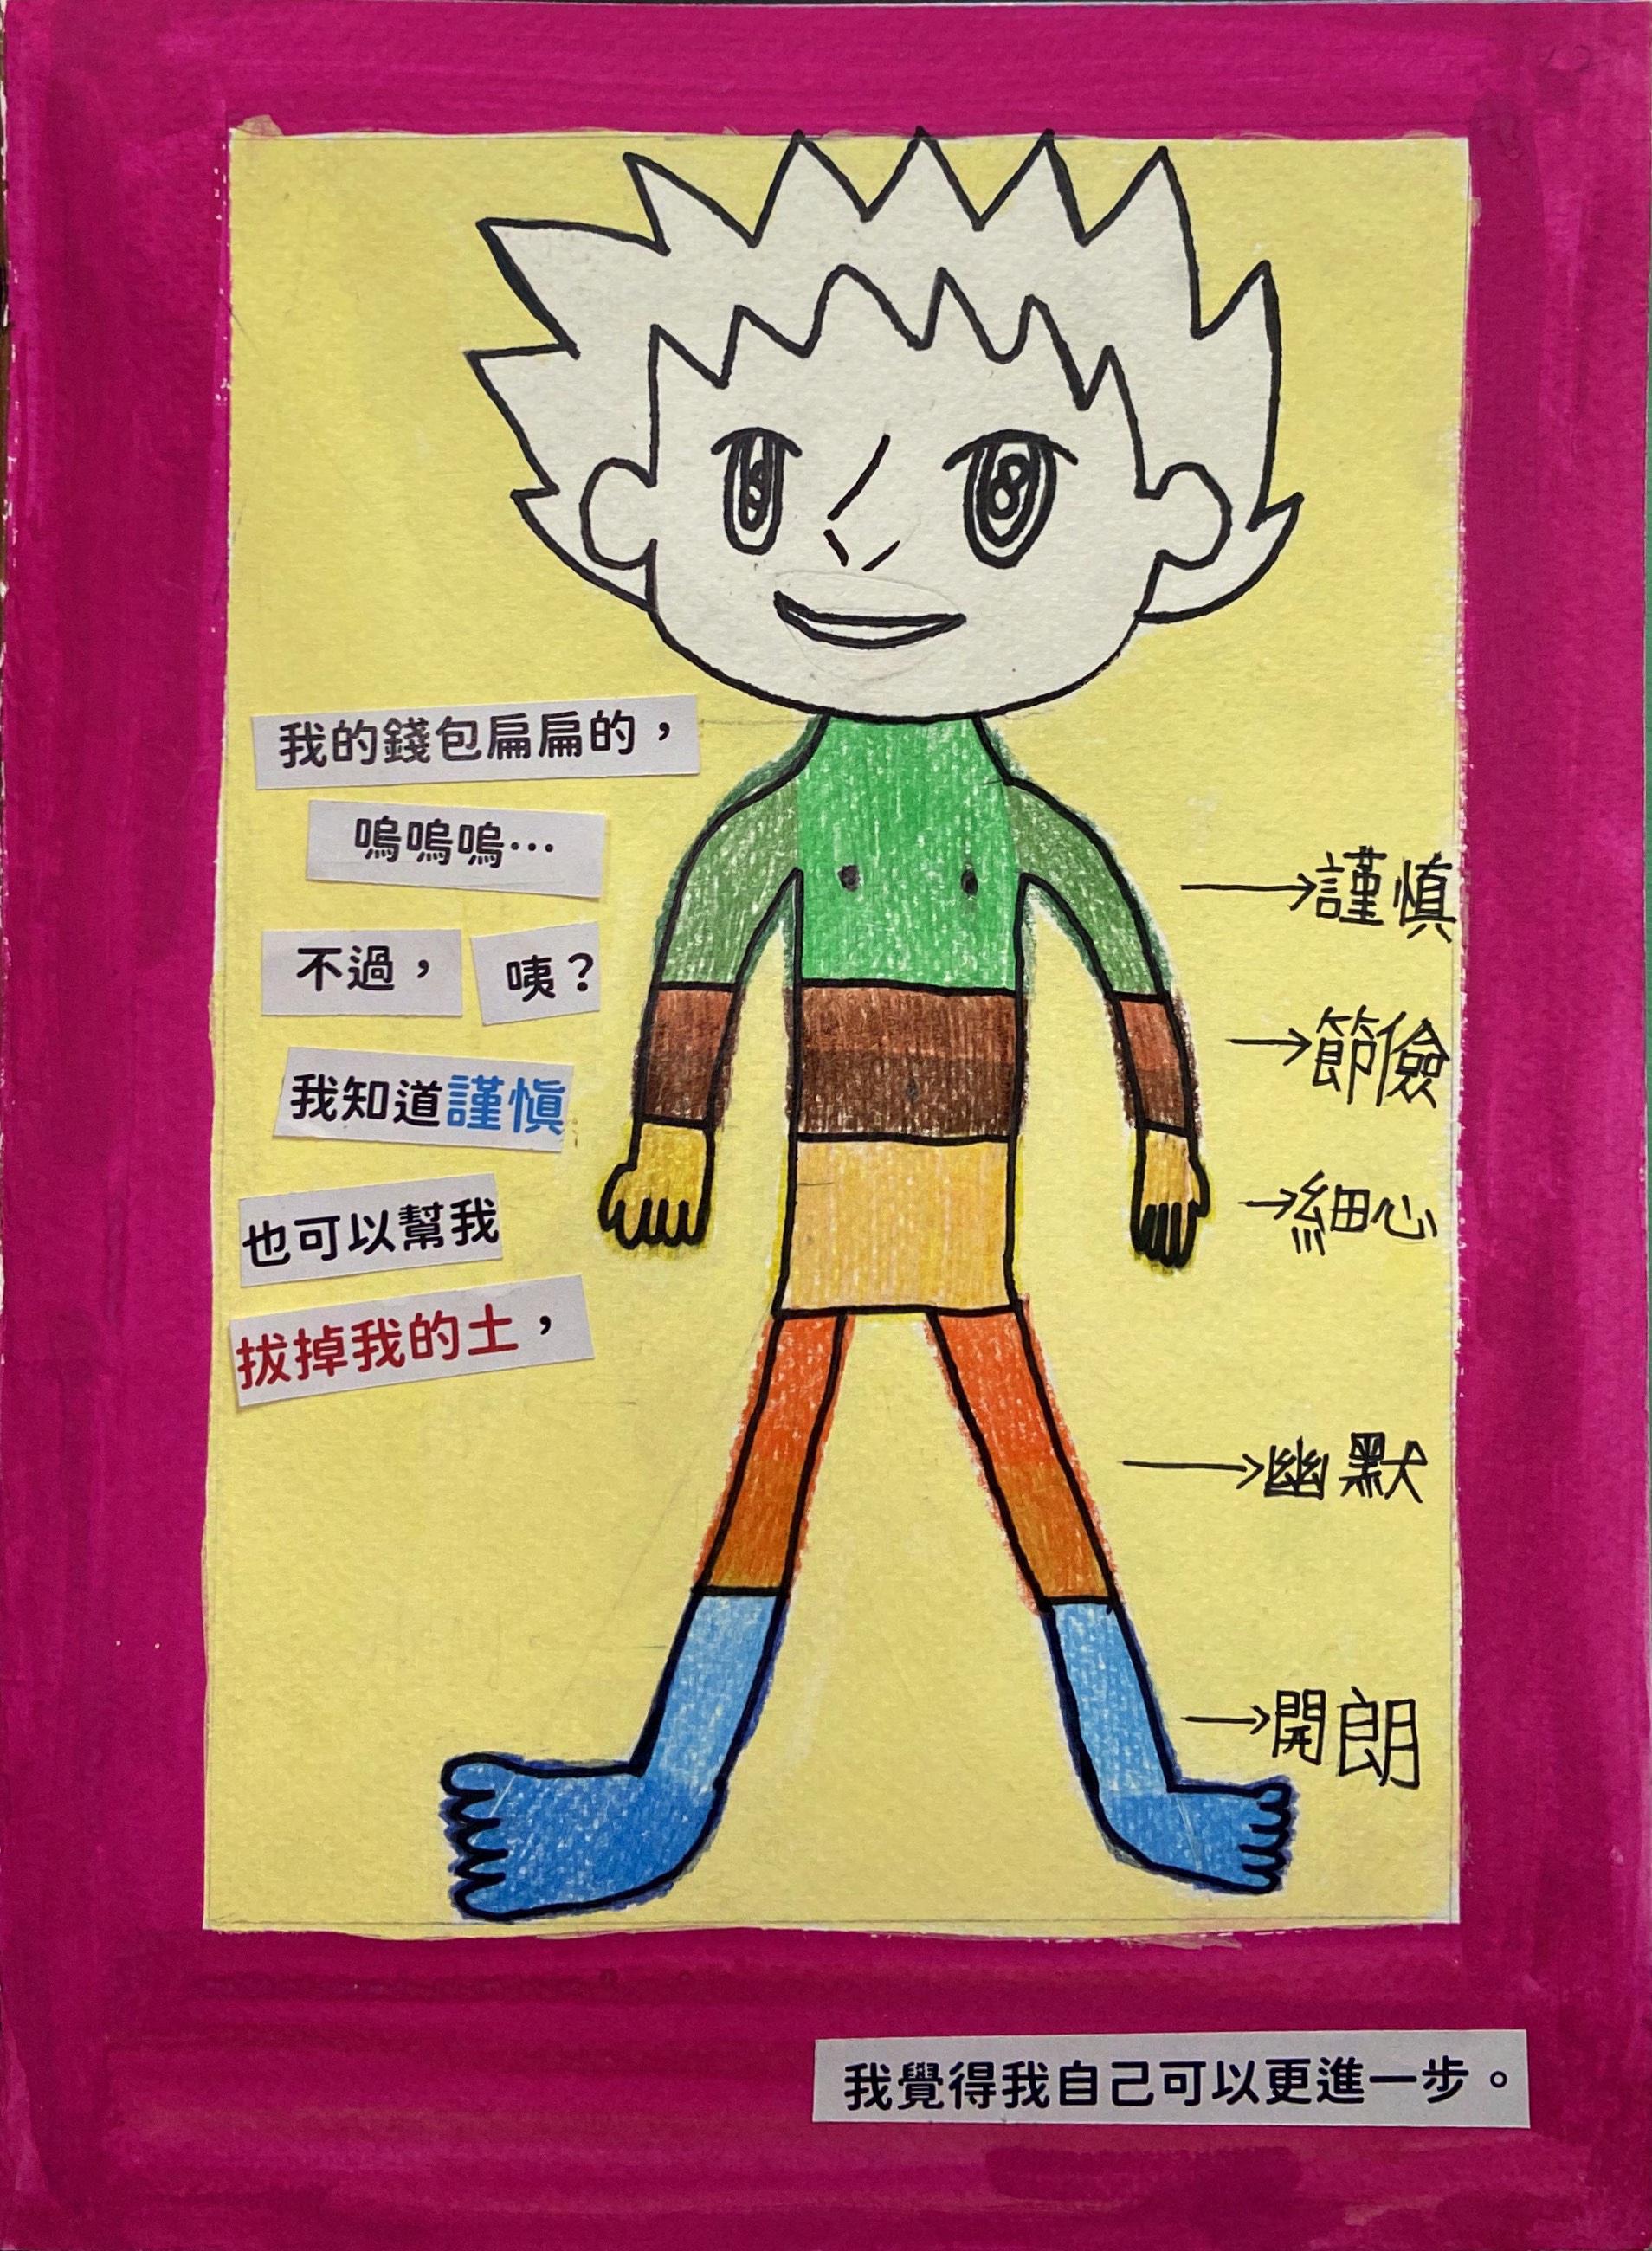 我的錢包扁扁的，
嗚嗚嗚…
不過，
咦？
我知道謹慎
也可以幫我
拔掉我的土，
謹慎
節儉
細心
幽默
開朗
我覺得我自己可以更進一步。